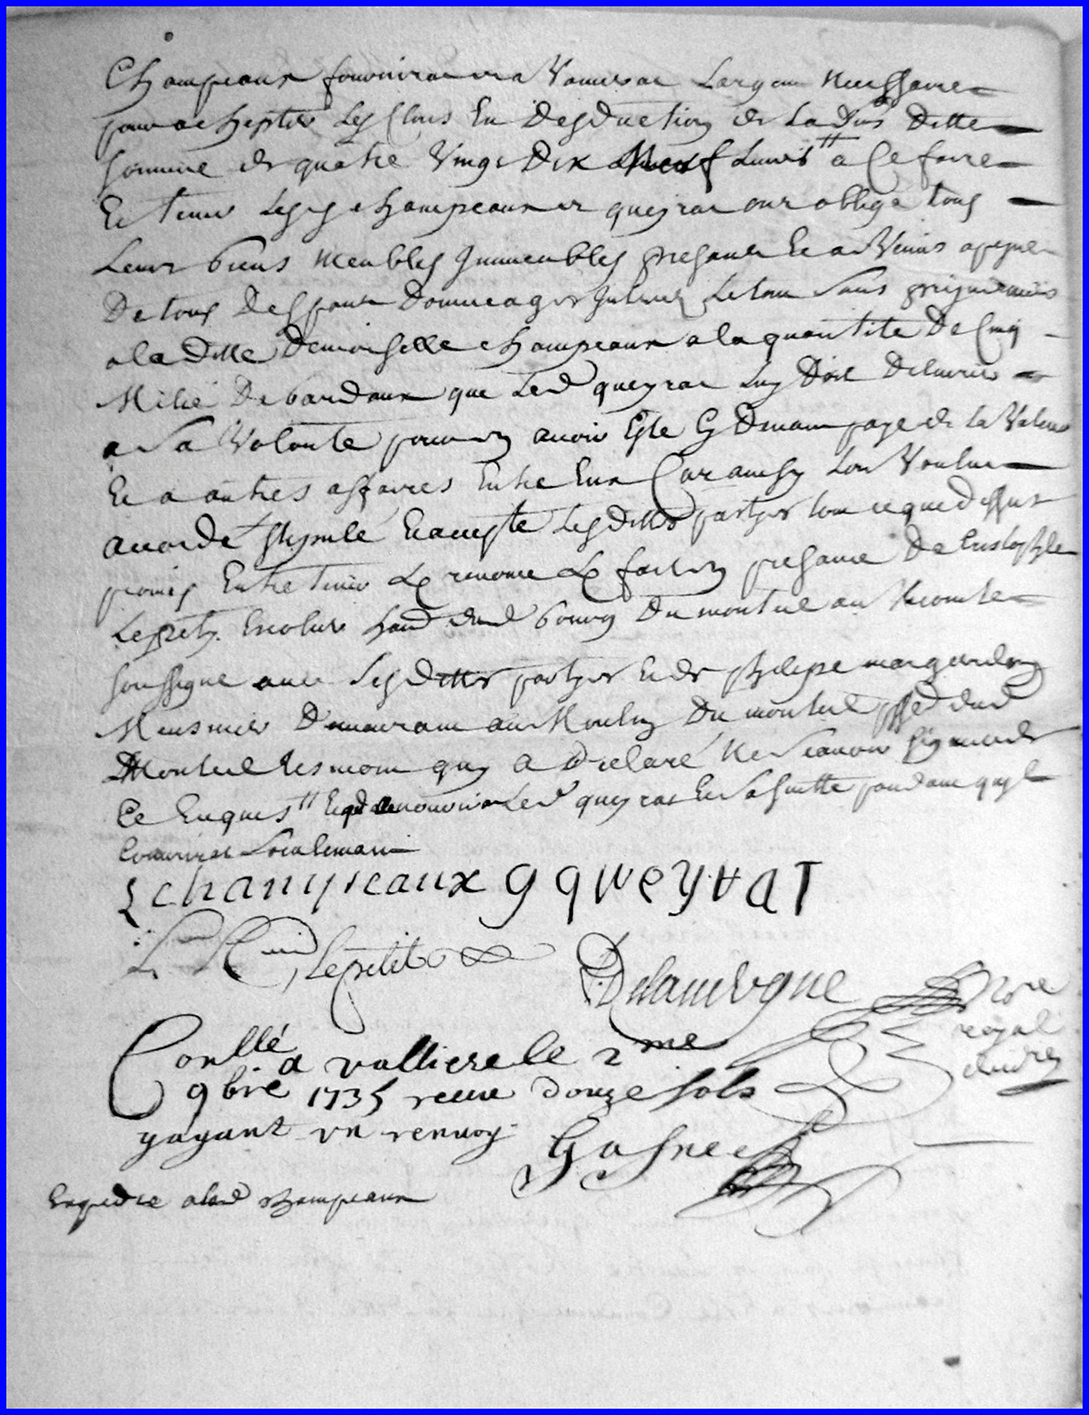 Champeaux fournira largen necessaire
pour achepter les clous en desduction de laditte
somme de quatre vingt dix neuf livres tt a ce faire
et tenir lesd champeaux et queyrat ont oblige tous
leurs biens meubles immeubles presans et a venir a peyne
de tous despans dommages interez le tout sans
a la ditte demoiselle champeaux a la quantite de cinq
milié de bardaux que led queyrat luy doit delivrer
a sa volonte pour en avoir este cy devant paye de la valeur
et a autres affaires entre eux car ainsy lon voulu
accorde stipulé et accepte lesdittes partyes tout ce que dessus
promis entretenir &c renonce &c fait en presance de
lepetit dud bourg du monteil au vicomte
soussigne avec lesdittes partyes et de philipe
meusnier demeurant au moulin du monteil dud
monteil tesmoin quy a declaré ne scavoir signer de
ce enquis tt led queyrat et sa suitte pandant quyl
seulemant
champeaux g queyrat
lepetit
Delavergne nore
royal
Conllé a valliere le 2me
9bre 1735 receu douze sols
y ayant un renvoy
Expedie alad champeaux